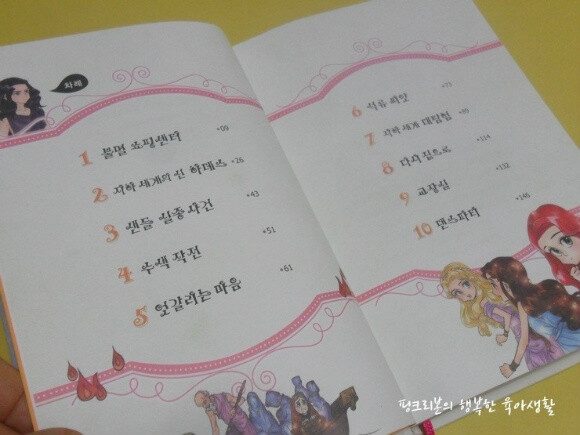 차례
1 불멸 쇼핑센터 •09
2 지하 세계의 신 하데스 •26
3 샌들 실종 사건 •43
4 수색 작전 •51
5 엇갈리는 마음 •61
6 석류 씨앗 •71
7 지하 세계 대탐험 •89
8 다시 집으로 •114
9 교장실 •132
10 댄스파티 •146
핑크리본의 행복한 육아생활